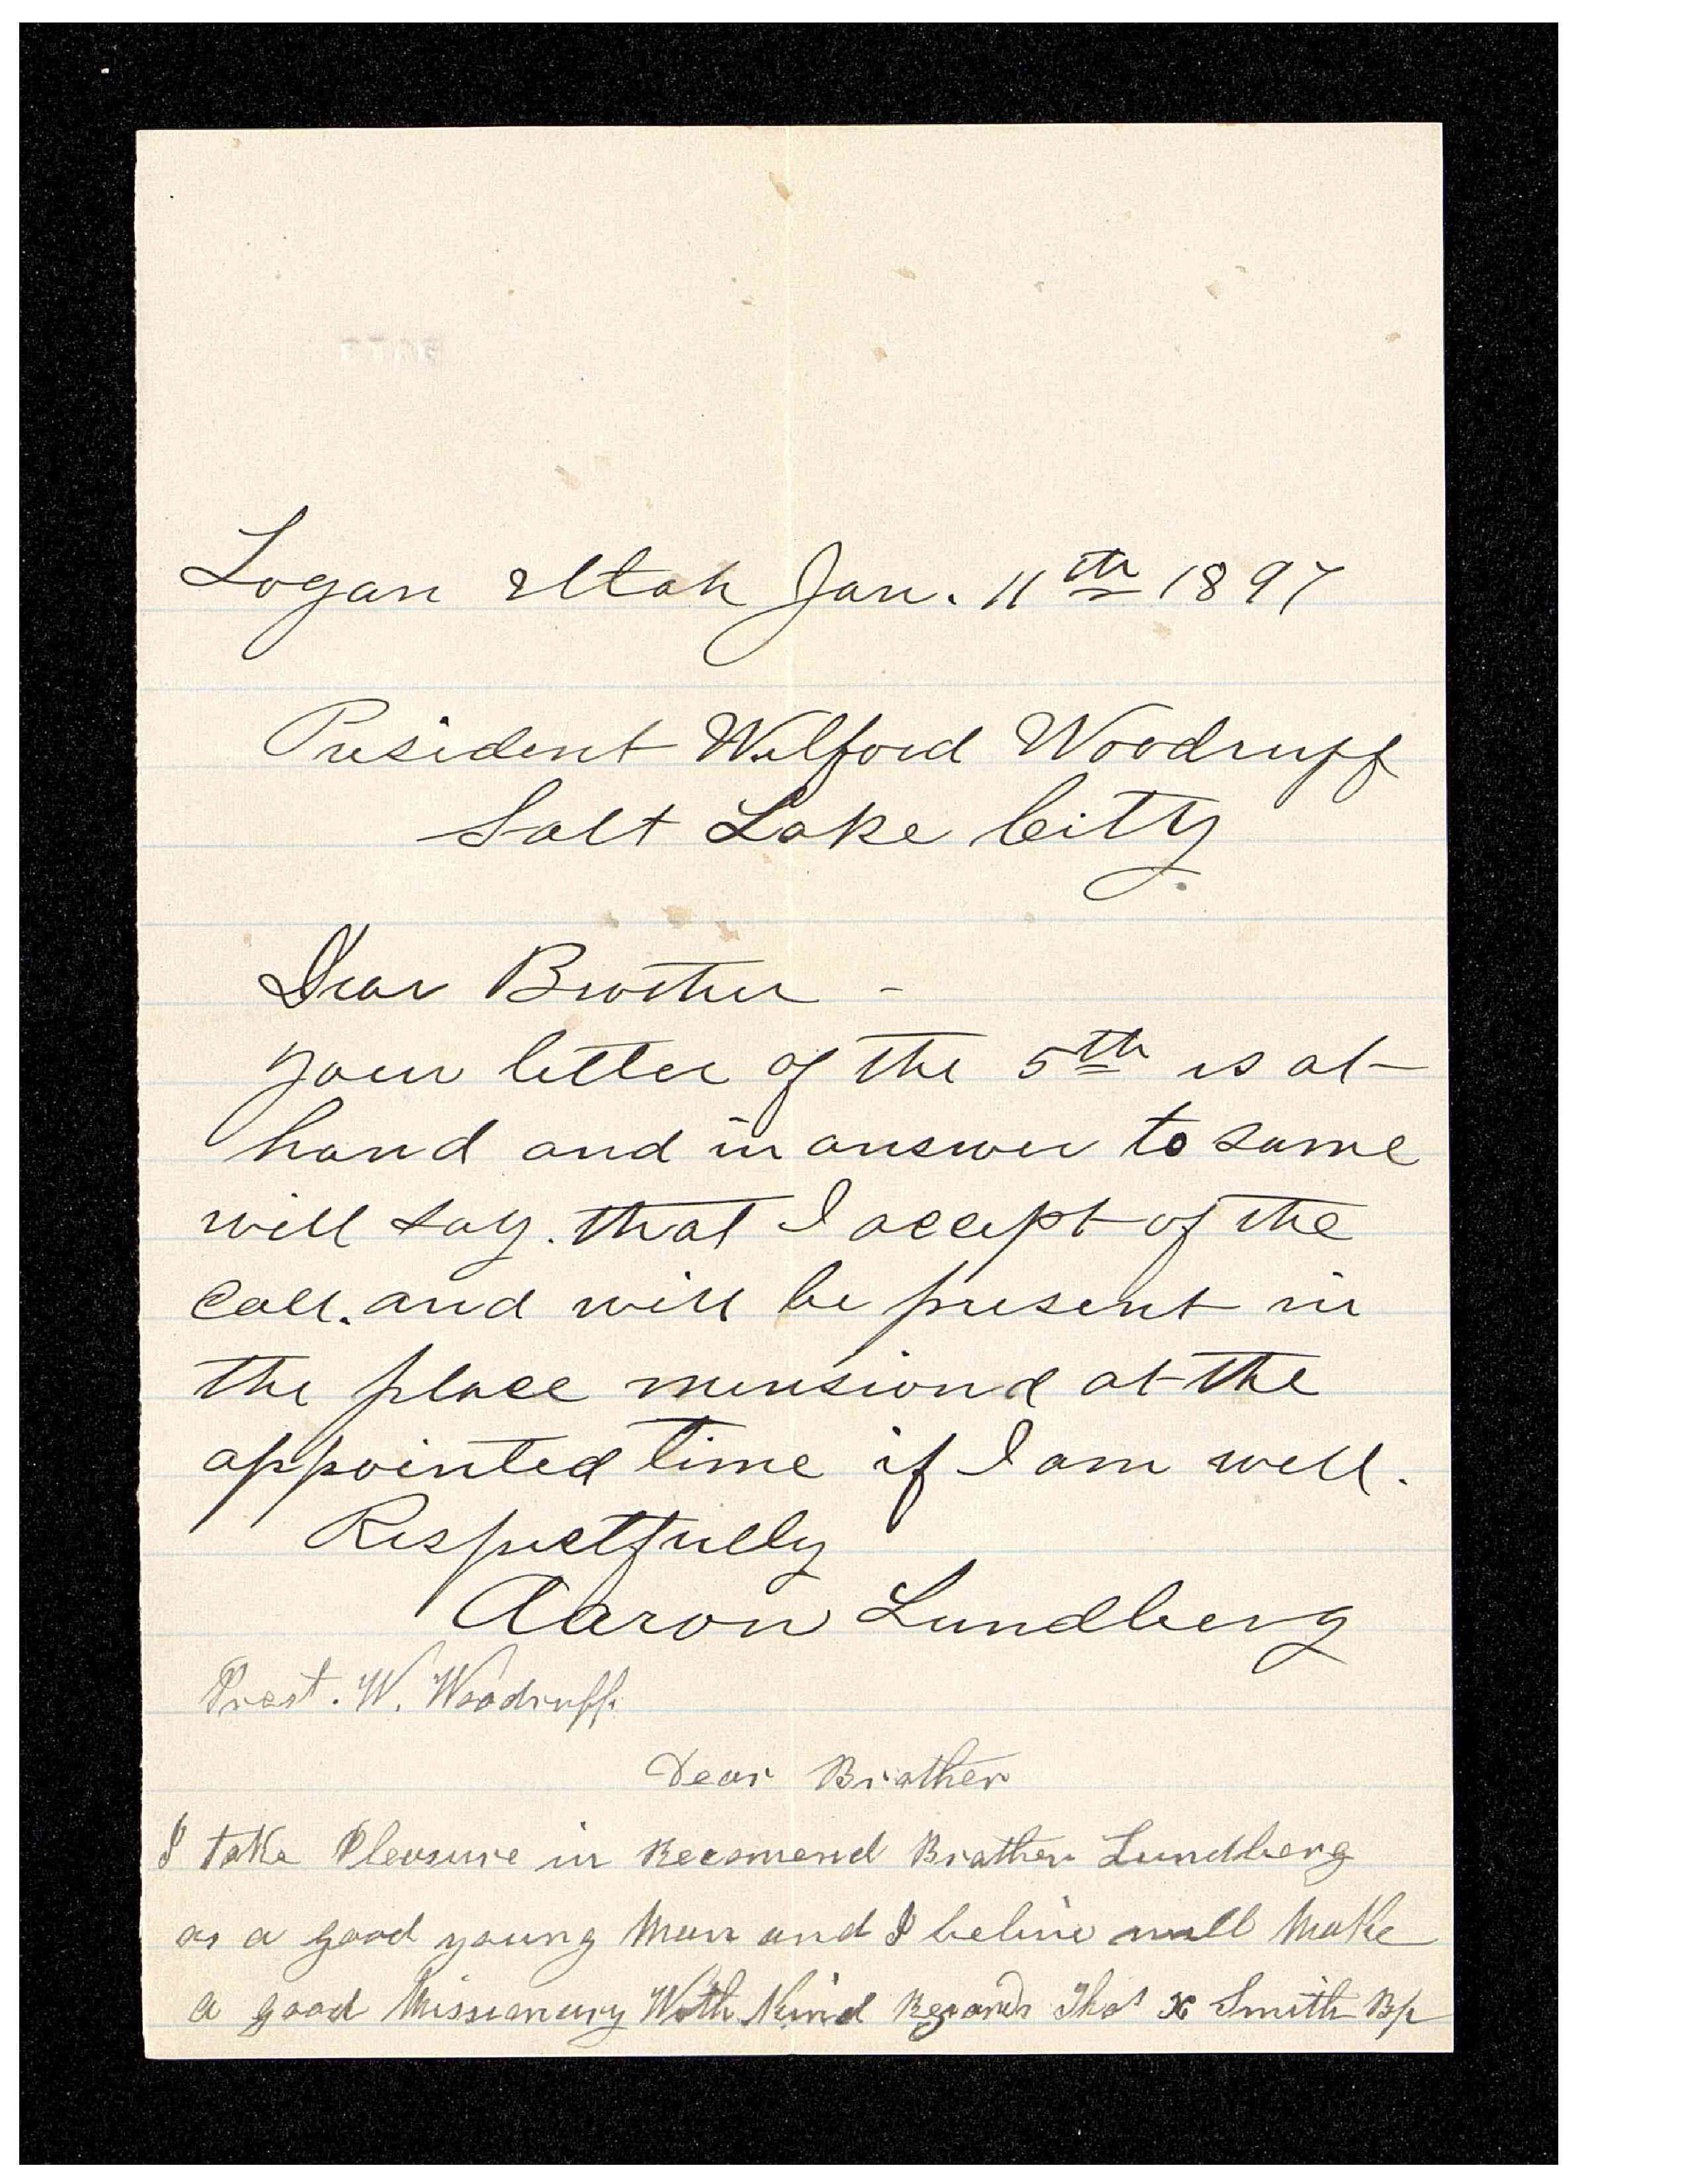 Logan Utah Jan. 11th 1897
President Wilford Woodruff
Salt Lake City.
Dear Brother -
your letter of the 5th is at
hand and in answer to same
will say. that I accept of the
call. and will be present in
the place mensiond at the
appointed time if I am well.
Respectfully
Aaron Lundberg
Prest. W. Woodruff.
Dear Brother
I take Pleasure in Recomend Brother Lundberg
as a good young Man and I belive will Make
a good Missionary With Kind Regards Thos X Smith Bp